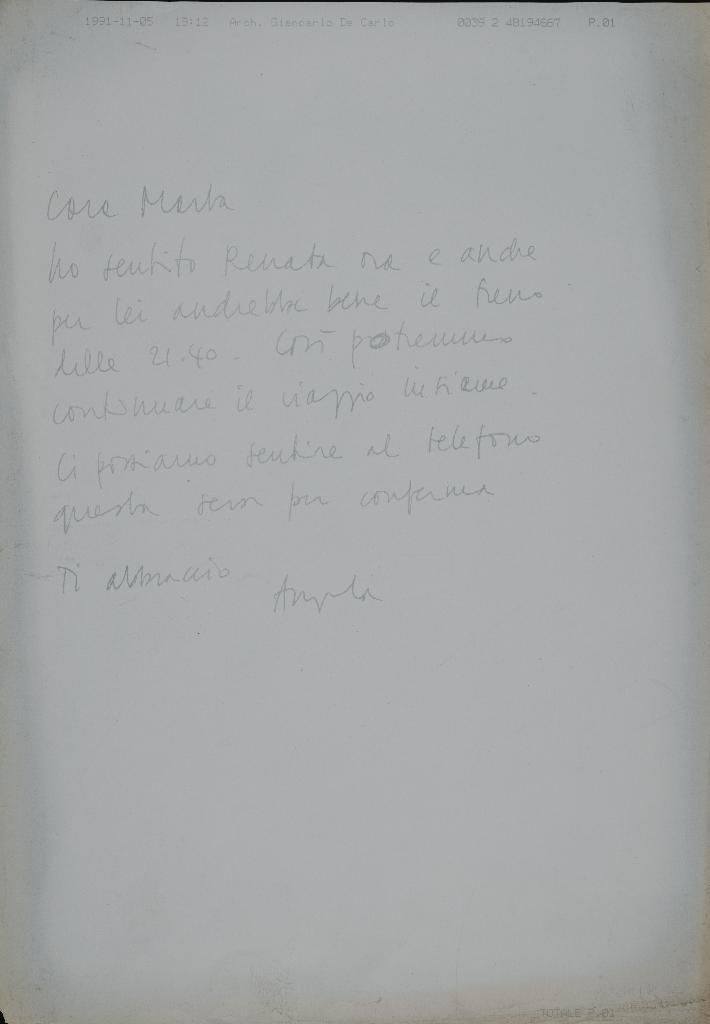 1991-11-05 19:12 Arch. Giancarlo De Carlo 0039 2 48194667 P.01
Cara Marta
ho sentito Renata ora e anche
per lei andrebbe bene il treno
delle 21.40. Così potremmo
continuare il viaggio insieme.
Ci possiamo sentire al telefono
questa sera per conferma
Ti abbraccio
Angela
TOTALE P.01